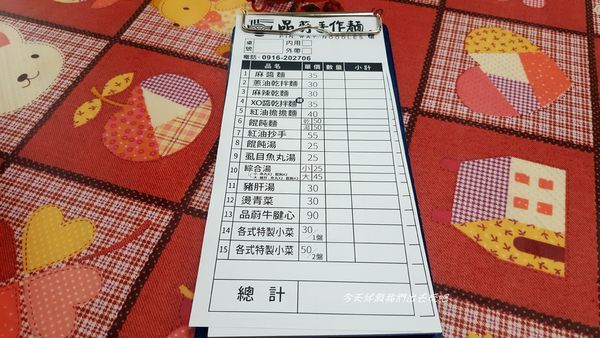 品蔚手作麵
PIN WAY NOODLES
桌號 內用 外帶
電話: 0916-202706
品名 單價 數量 小計
1 麻醬麵 35
2 蔥油乾拌麵 30
3 麻辣乾麵 30
4 XO醬乾拌麵 35
5 紅油擔擔麵 40
6 餛飩麵 乾50 湯50
7 紅油抄手 55
8 餛飩湯 25
9 虱目魚丸湯 25
10 綜合湯 小25 大45
11 豬肝湯 30
12 燙青菜 30
13 品蔚牛腱心 90
14 各式特製小菜 30/1盤
15 各式特製小菜 50/2盤
總計